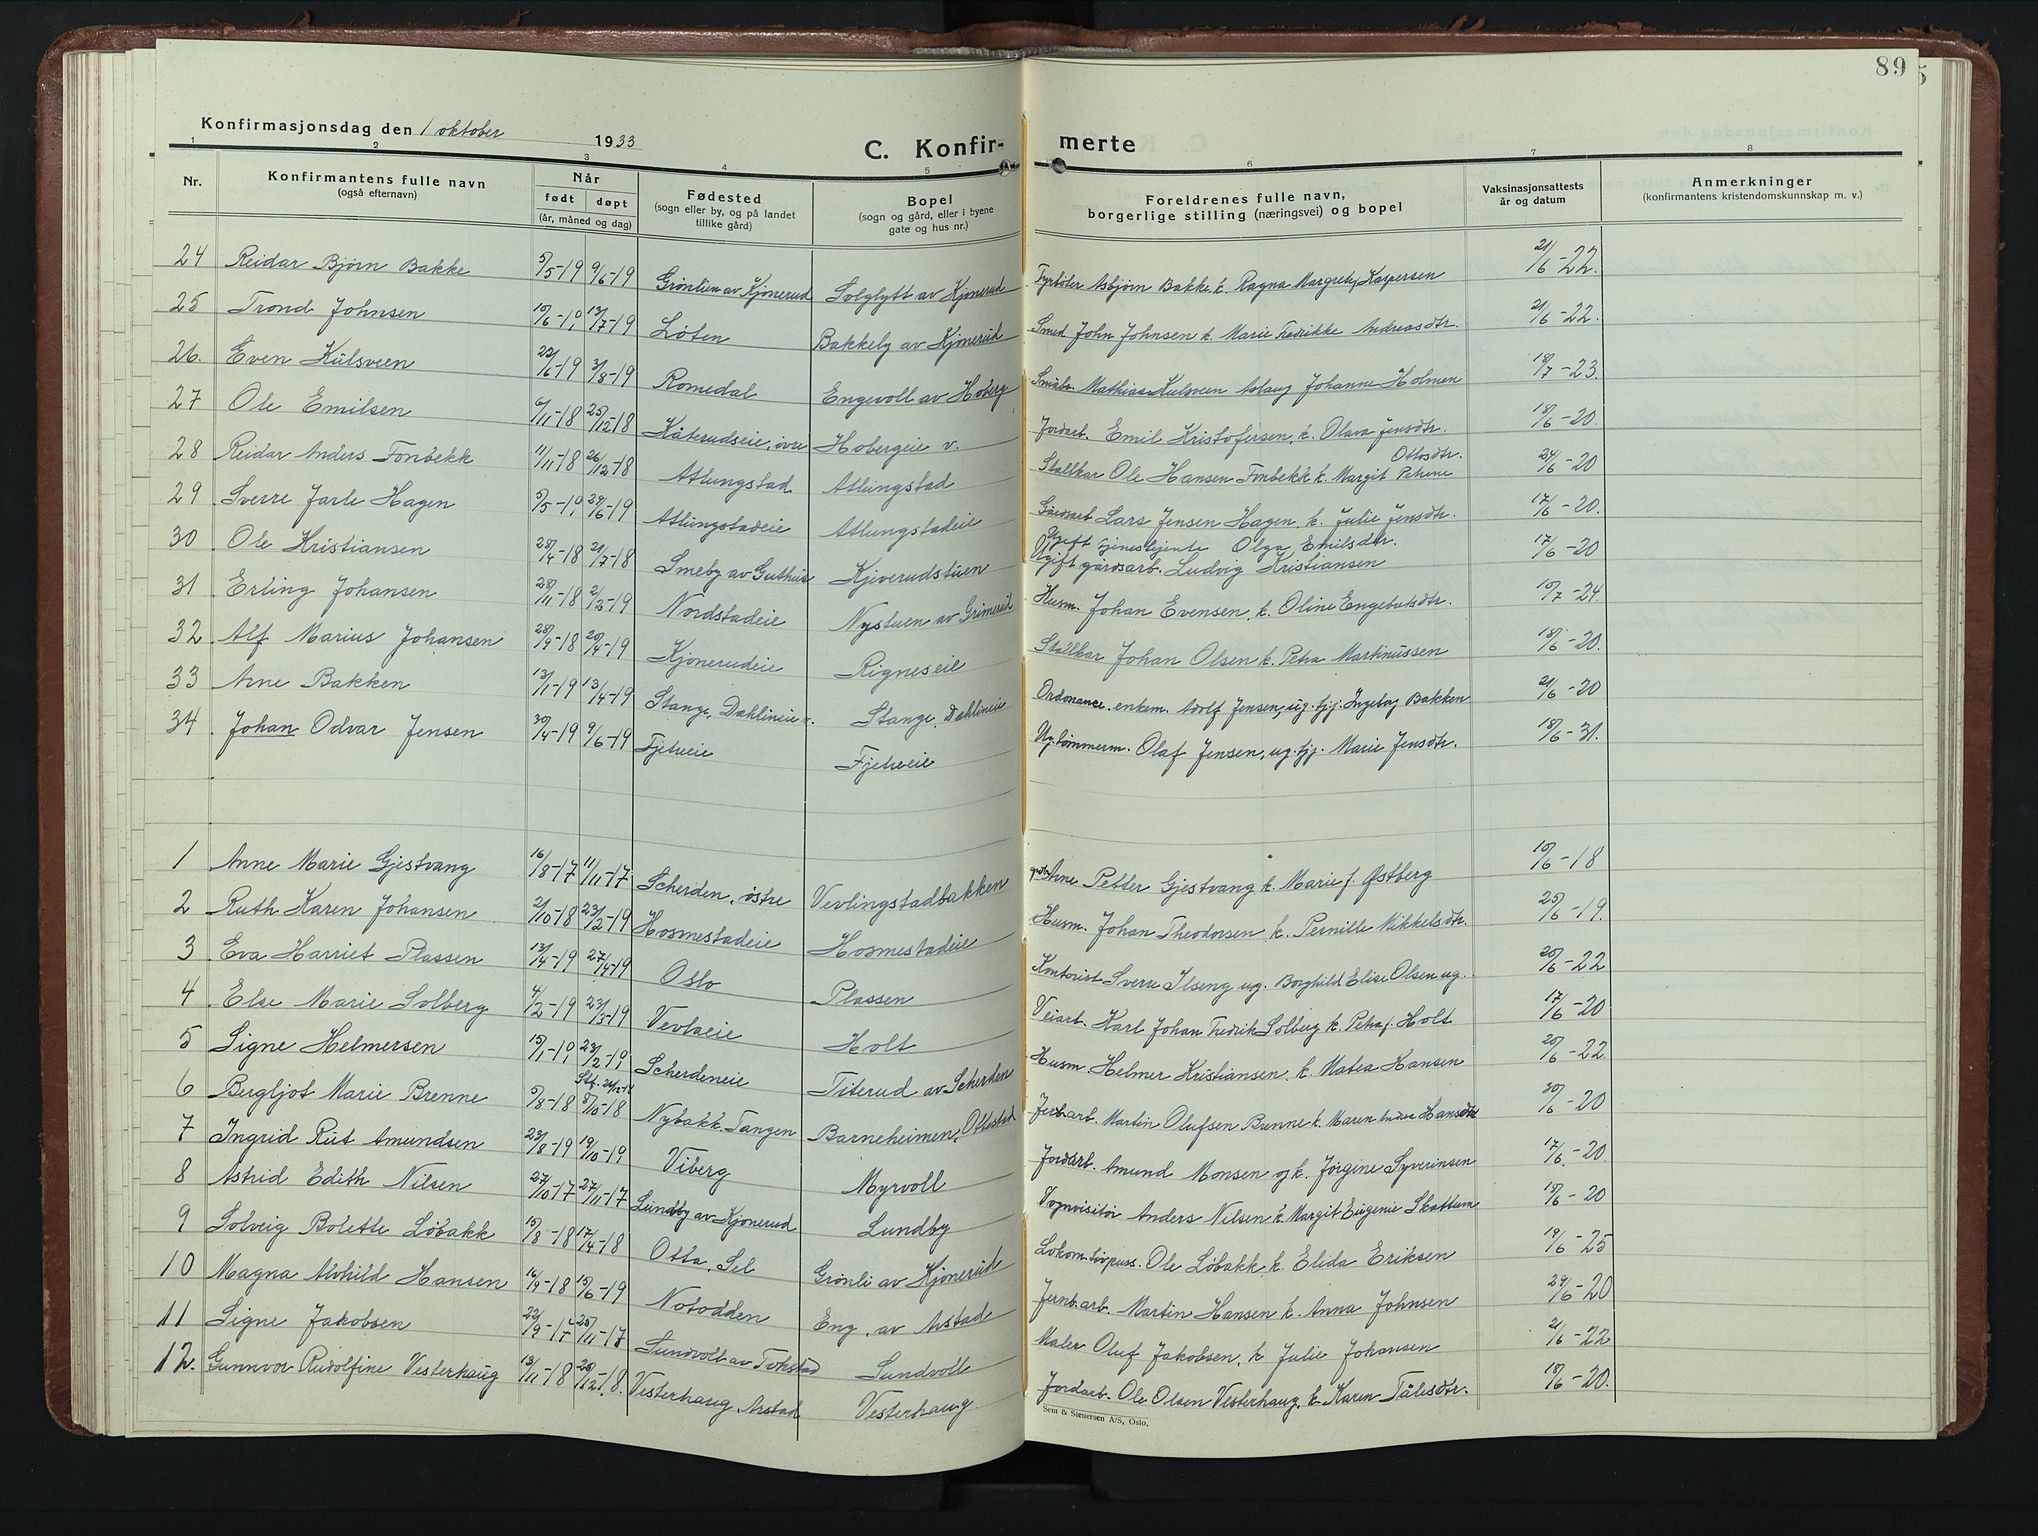 89
Konfirmasjonsdag den 1 oktober 1933
C. Konfir- merte
1 2 3 4 5 6 7 8
Nr. Konfirmantens fulle navn (også efternavn) Når født døpt (år, måned og dag) Fødested (sogn eller by, og på landet tillike gård) Bopel (sogn og gård, eller i byene gate og hus nr.) Foreldrenes fulle navn, borgerlige stilling (næringsvei) og bopel Vaksinasjonsattests år og datum Anmerkninger (konfirmantens kristendomskunnskap m. v.)
24 Reidar Bjørn Bakke 5/5-19 9/6-19 Grønlien av Kjonerud Solglytt av Kjonerud Fyrbøter Asbjørn Bakke k. Ragna Margrethe Kaspersen 21/6-22.
25 Trond Johnsen 10/6-19 13/7-19 Løten Bakkely av Kjonerud Smed John Johnsen k. Marie Fredrikke Andreasdtr. 21/6-22.
26. Even Kulsveen 22/6-19 3/8-19 Romedal Engevoll av Hoberg Småbr. Mathias Kulsveen Aslaug Johanne Holmen 18/7-23.
27 Ole Emilsen 6/11-18 25/12-18 Kåterudseie, øvre Hobergeie v. Jordarb. Emil Kristofersen, k. Olava Jensdtr. 18/6-20.
28 Reidar Anders Fonbekk 11/11-18 26/12-18 Atlungstad Atlungstad Stallkar Ole Hansen Fonbekk k. Margit Petrine Ottosdtr. 24/6-20
29 Sverre Jarle Hagen 5/5-19 27/6-19 Atlungstadeie Atlungstadeie Gårdsarb Lars Jensen Hagen, k. Julie Jensdtr. 17/6-20.
30 Ole Kristiansen 28/4-18 21/7-18 Smeby av Guthus Kjeverudstuen Ugift tjenestejente Olga Emilsdtr. 17/6-20
Ugift gårdsarb. Ludvig Kristiansen
31 Erling Johansen 28/11-18 2/2-19 Nordstadeie Nystuen av Grimerud Husm. Johan Evensen, k. Oline Engebretsdtr. 10/7-24.
32 Alf Marius Johansen 28/9-18 20/4-19 Kjonerudeie Rigneseie Stallkar Johan Olsen k. Petra Martinussen 18/6-20.
33 Arne Bakken 13/1-19 13/4-19 Stange, Dæhlineie v. Stange, Dæhlineie Ordonance. enkem. Adolf Jensen, ug. tjj. Ingeborg Bakken 21/6-20
34 Johan Odvar Jensen 30/4-19 9/6-19 Fjetreie Fjetreie Ug. tømmerm. Olaf Jensen, ug. tjj. Marie Jensdtr. 18/6-31.
1 Anne Marie Gjestvang 16/8-17 11/11-17 Scherden, østre Vevlingstadbakken Arne Petter Gjestvang k. Marie f. Østberg 10/6-18
2 Ruth Karen Johansen 2/10-18 23/2-19 Hosmestadeie Hosmestadeie Husm. Johan Theodorsen k. Pernille Mikkelsdtr. 25/6-19.
3 Eva Harriet Plassen 13/4-19 27/4-19 Oslo Plassen Kontorist Sverre Ilseng ug. Borghild Elise Olsen ug. 20/6-22
4 Else Marie Solberg 4/2-19 23/3-19 Vevlaeie Holt Veiarb. Karl Johan Fredrik Solberg k. Petra f. Holt 17/6-20
5 Signe Helmersen 15/1-19 23/2-19 Scherdeneie Titerud av Scherden Husm. Helmer Kristiansen, k. Matea Hansen 20/6-22.
6 Bergljot Marie Brenne 5/8-18 8/10-18 Nybakk, Tangen Barneheimen, Ottestad Jernb.arb. Martin Olufsen Brenne k. Maren Andrea Hansdtr 30/6-20
7 Ingrid Rut Amundsen 23/8-19 19/10-19 Viberg Myrvoll Jordarb. Amund Monsen og k. Jørgine Syverinsen 17/6-20.
8 Astrid Edith Nilsen 27/10-17 27/11-17 Lundby av Kjonerud Lundby Vognvisitør Anders Nilsen k. Margit Eugenie Skattum 18/6-20
9 Solveig Bolette Løbakk 15/3-18 17/4-18 Otta, Sel Grønli av Kjonerud Lokom.tivpuss. Ole Løbakk, k. Elida Eriksen 19/6-25
10 Magna Alvhild Hansen 16/9-18 15/6-19 Notodden Eng, av Arstad Jernb.arb. Martin Hansen k. Anna Johnsen 24/6-20
11 Signe Jakobsen 22/9-17 25/11-17 Sundvoll av Tokstad Sundvoll Maler Oluf Jakobsen, k. Julie Johansen 21/6-22
12. Gunnvor Rudolfine Vesterhaug 13/11-18 25/12-18. Vesterhaug, Arstad Vesterhaug Jordarb. Ole Olsen Vesterhaug, k. Karen Tålesdtr. 18/6-20.
Sem & Stenersen A/S, Oslo.